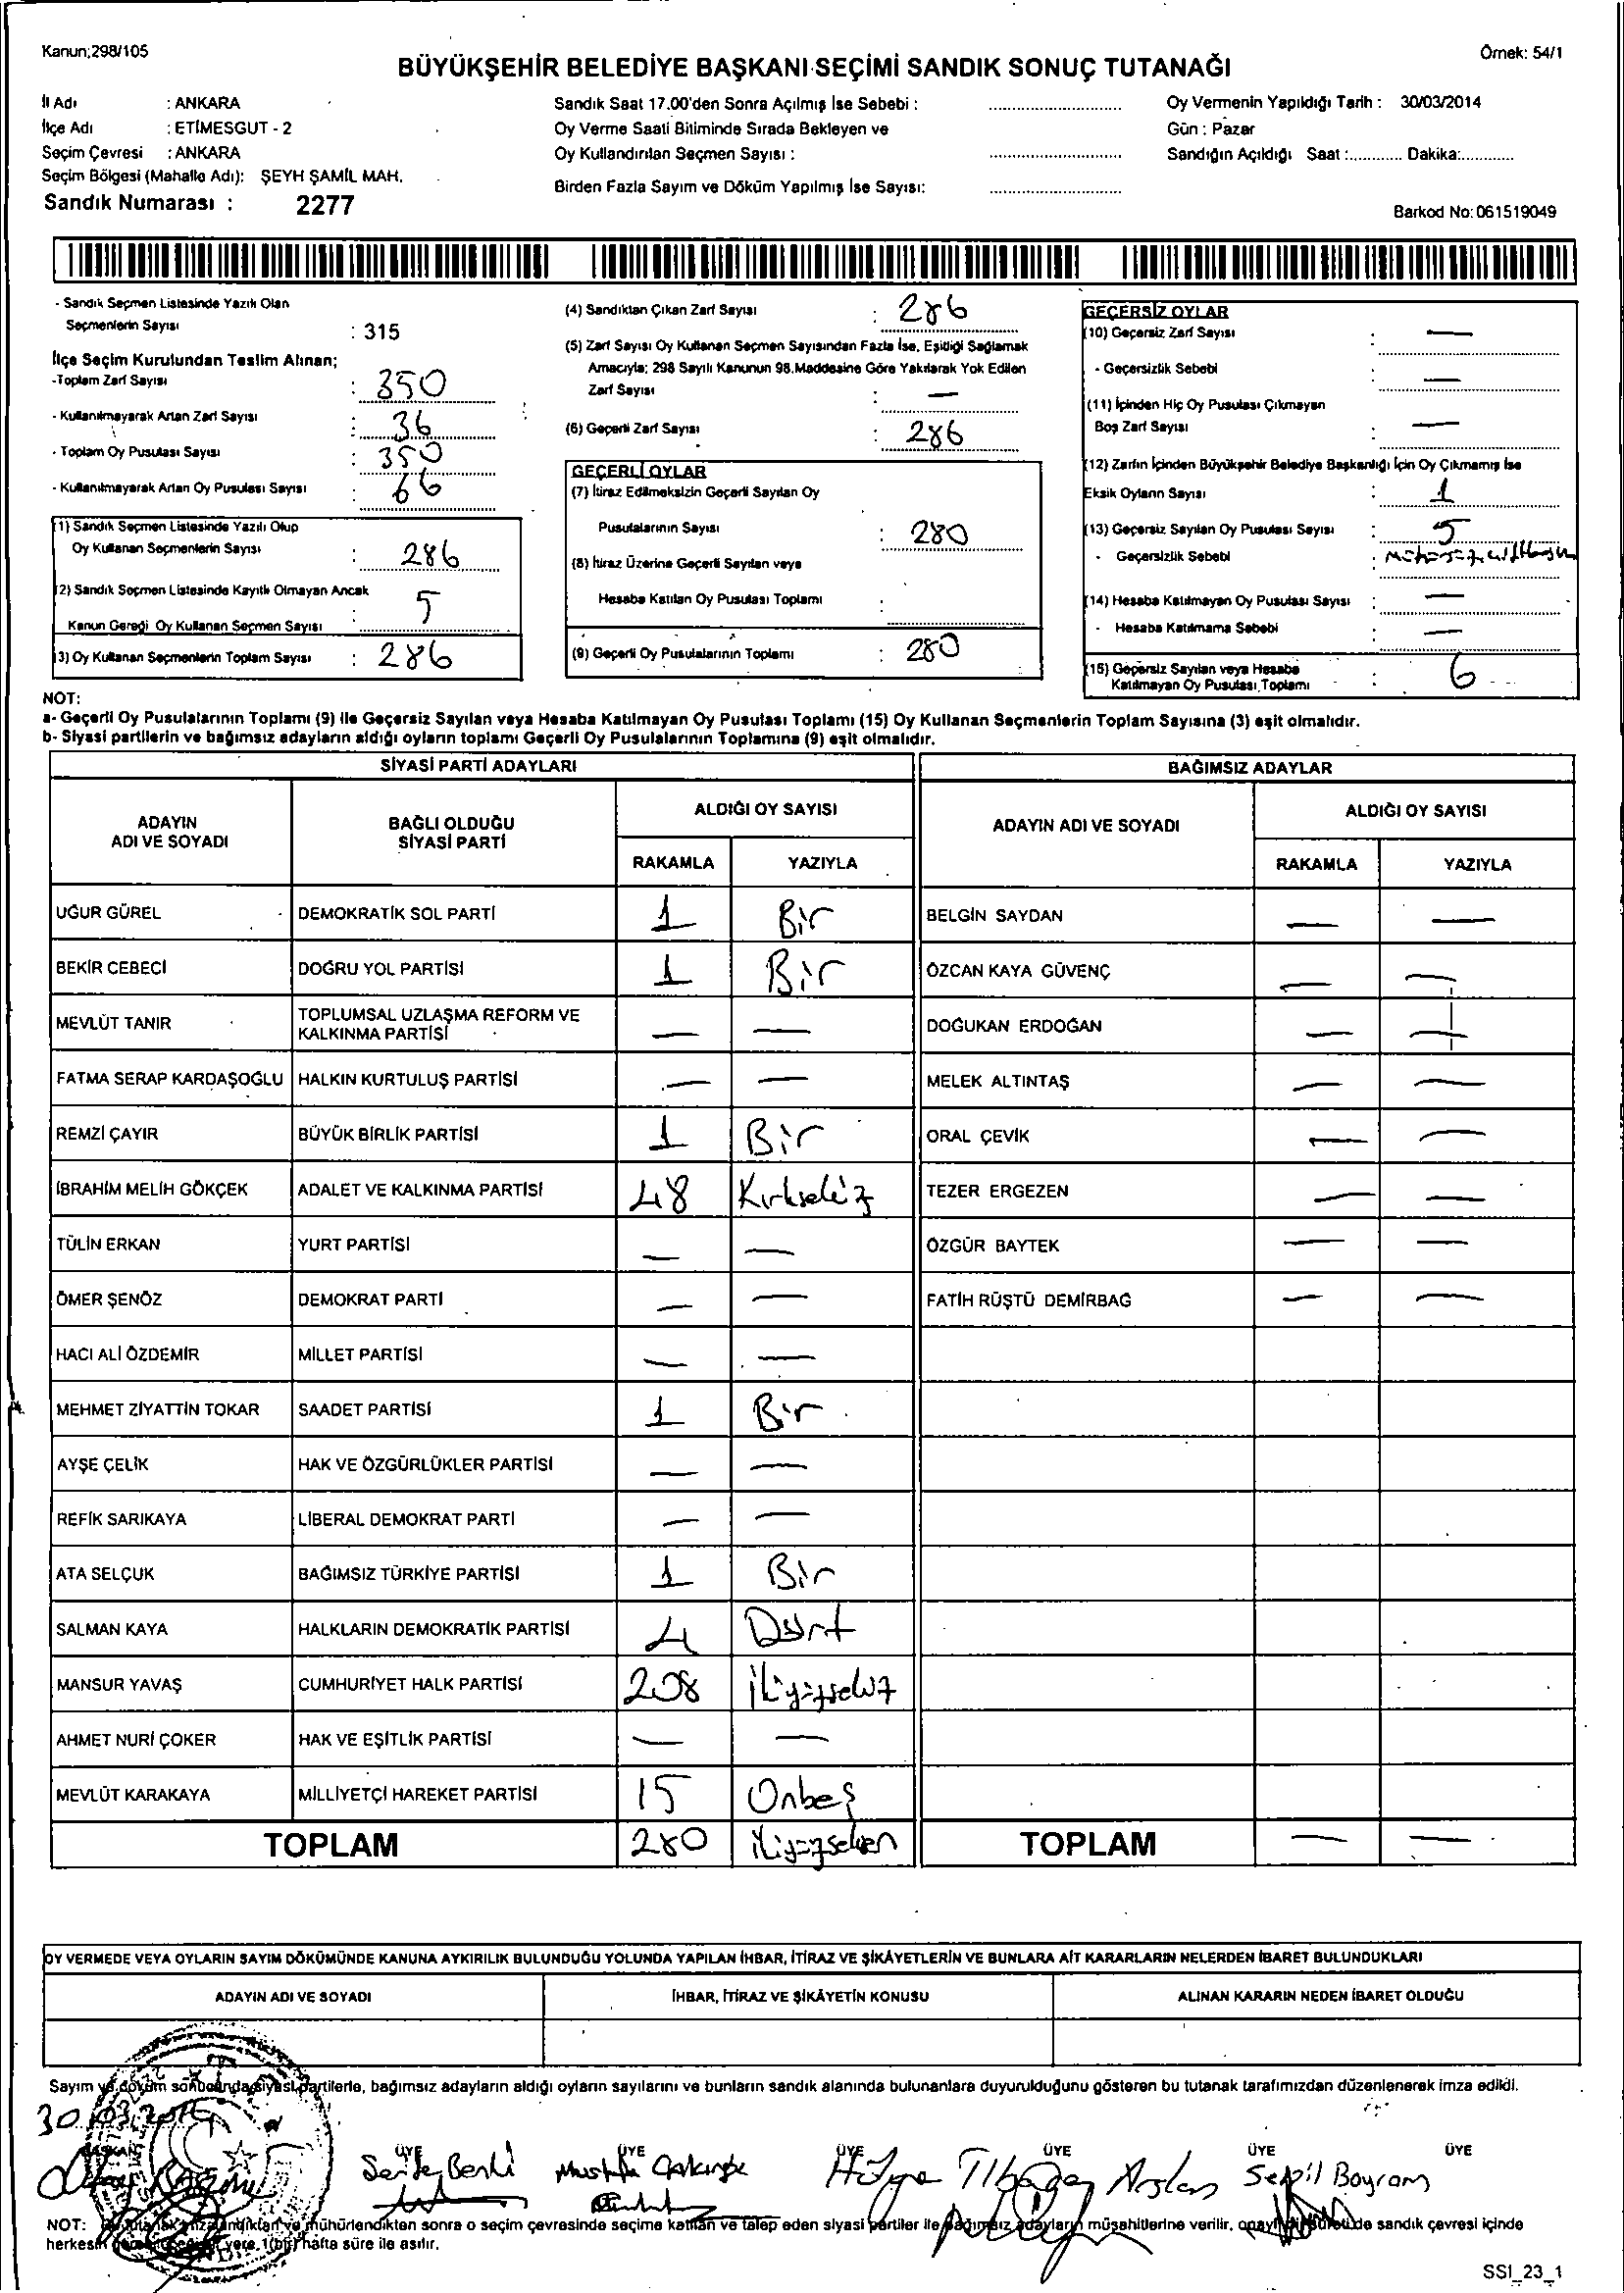 Kanun;298/105
Örnek: 54/1
BÜYÜKŞEHİR BELEDİYE BAŞKANI SEÇİMİ SANDIK SONUÇ TUTANAĞI
İl Adı : ANKARA
İlçe Adı : ETİMESGUT - 2
Seçim Çevresi : ANKARA
Seçim Bölgesi (Mahalle Adı): ŞEYH ŞAMİL MAH.
Sandık Numarası : 2277
Sandık Saat 17.00'den Sonra Açılmış İse Sebebi :
Oy Verme Saati Bitiminde Sırada Bekleyen ve
Oy Kullandırılan Seçmen Sayısı :
Birden Fazla Sayım ve Döküm Yapılmış İse Sayısı:
Oy Vermenin Yapıldığı Tarih : 30/03/2014
Gün : Pazar
Sandığın Açıldığı Saat :............ Dakika:............
Barkod No: 061519049
- Sandık Seçmen Listesinde Yazılı Olan
Seçmenlerin Sayısı : 315
İlçe Seçim Kurulundan Teslim Alınan;
-Toplam Zarf Sayısı : 350
- Kullanılmayarak Artan Zarf Sayısı : 36
- Toplam Oy Pusulası Sayısı : 350
- Kullanılmayarak Artan Oy Pusulası Sayısı : 66
(1) Sandık Seçmen Listesinde Yazılı Olup
Oy Kullanan Seçmenlerin Sayısı : 286
(2) Sandık Seçmen Listesinde Kayıtlı Olmayan Ancak
Kanun Gereği Oy Kullanan Seçmen Sayısı : 5
(3) Oy Kullanan Seçmenlerin Toplam Sayısı : 286
(4) Sandıktan Çıkan Zarf Sayısı : 286
(5) Zarf Sayısı Oy Kullanan Seçmen Sayısından Fazla İse, Eşitliği Sağlamak
Amacıyla; 298 Sayılı Kanunun 98.Maddesine Göre Yakılarak Yok Edilen
Zarf Sayısı : —
(6) Geçerli Zarf Sayısı : 286
GEÇERLİ OYLAR
(7) İtiraz Edilmeksizin Geçerli Sayılan Oy
Pusulalarının Sayısı : 280
(8) İtiraz Üzerine Geçerli Sayılan veya
Hesaba Katılan Oy Pusulası Toplamı :
(9) Geçerli Oy Pusulalarının Toplamı : 280
GEÇERSİZ OYLAR
(10) Geçersiz Zarf Sayısı : —
- Geçersizlik Sebebi : —
(11) İçinden Hiç Oy Pusulası Çıkmayan
Boş Zarf Sayısı : —
(12) Zarfın İçinden Büyükşehir Belediye Başkanlığı İçin Oy Çıkmamış İse
Eksik Oyların Sayısı : 1
(13) Geçersiz Sayılan Oy Pusulası Sayısı : 5
- Geçersizlik Sebebi :
(14) Hesaba Katılmayan Oy Pusulası Sayısı : —
- Hesaba Katılmama Sebebi : —
(15) Geçersiz Sayılan veya Hesaba
Katılmayan Oy Pusulası Toplamı : 6
NOT:
a- Geçerli Oy Pusulalarının Toplamı (9) ile Geçersiz Sayılan veya Hesaba Katılmayan Oy Pusulası Toplamı (15) Oy Kullanan Seçmenlerin Toplam Sayısına (3) eşit olmalıdır.
b- Siyasi partilerin ve bağımsız adayların aldığı oyların toplamı Geçerli Oy Pusulalarının Toplamına (9) eşit olmalıdır.
SİYASİ PARTİ ADAYLARI
ADAYIN ADI VE SOYADI
BAĞLI OLDUĞU SİYASİ PARTİ
ALDIĞI OY SAYISI
RAKAMLA YAZIYLA
UĞUR GÜREL DEMOKRATİK SOL PARTİ 1 Bir
BEKİR CEBECİ DOĞRU YOL PARTİSİ 1 Bir
MEVLÜT TANIR TOPLUMSAL UZLAŞMA REFORM VE KALKINMA PARTİSİ — —
FATMA SERAP KARDAŞOĞLU HALKIN KURTULUŞ PARTİSİ — —
REMZİ ÇAYIR BÜYÜK BİRLİK PARTİSİ 1 Bir
İBRAHİM MELİH GÖKÇEK ADALET VE KALKINMA PARTİSİ 48 Kırksekiz
TÜLİN ERKAN YURT PARTİSİ — —
ÖMER ŞENÖZ DEMOKRAT PARTİ — —
HACI ALİ ÖZDEMİR MİLLET PARTİSİ — —
MEHMET ZİYATTİN TOKAR SAADET PARTİSİ 1 Bir
AYŞE ÇELİK HAK VE ÖZGÜRLÜKLER PARTİSİ — —
REFİK SARIKAYA LİBERAL DEMOKRAT PARTİ — —
ATA SELÇUK BAĞIMSIZ TÜRKİYE PARTİSİ 1 Bir
SALMAN KAYA HALKLARIN DEMOKRATİK PARTİSİ 4 Dört
MANSUR YAVAŞ CUMHURİYET HALK PARTİSİ 208 ikiyüzsekiz
AHMET NURİ ÇOKER HAK VE EŞİTLİK PARTİSİ — —
MEVLÜT KARAKAYA MİLLİYETÇİ HAREKET PARTİSİ 15 Onbeş
TOPLAM 280 ikiyüzseksen
BAĞIMSIZ ADAYLAR
ADAYIN ADI VE SOYADI
ALDIĞI OY SAYISI
RAKAMLA YAZIYLA
BELGİN SAYDAN — —
ÖZCAN KAYA GÜVENÇ — —
DOĞUKAN ERDOĞAN — —
MELEK ALTINTAŞ — —
ORAL ÇEVİK — —
TEZER ERGEZEN — —
ÖZGÜR BAYTEK — —
FATİH RÜŞTÜ DEMİRBAĞ — —
TOPLAM — —
OY VERMEDE VEYA OYLARIN SAYIM DÖKÜMÜNDE KANUNA AYKIRILIK BULUNDUĞU YOLUNDA YAPILAN İHBAR, İTİRAZ VE ŞİKÂYETLERİN VE BUNLARA AİT KARARLARIN NELERDEN İBARET BULUNDUKLARI
ADAYIN ADI VE SOYADI
İHBAR, İTİRAZ VE ŞİKÂYETİN KONUSU
ALINAN KARARIN NEDEN İBARET OLDUĞU
Sayım ve döküm sonucunda siyasi partilerle, bağımsız adayların aldığı oyların sayılarını ve bunların sandık alanında bulunanlara duyurulduğunu gösteren bu tutanak tarafımızdan düzenlenerek imza edildi.
30.03.2014
BAŞKAN ÜYE ÜYE ÜYE ÜYE ÜYE ÜYE
Mustafa Hülya Arslan Serpil Bayram
NOT: mühürlendikten sonra o seçim çevresinde seçime katılan ve talep eden siyasi partiler ile bağımsız adayların müşahitlerine verilir, onaylı bir sureti de sandık çevresi içinde
herkesin yere 1(bir) hafta süre ile asılır.
SSI_23_1